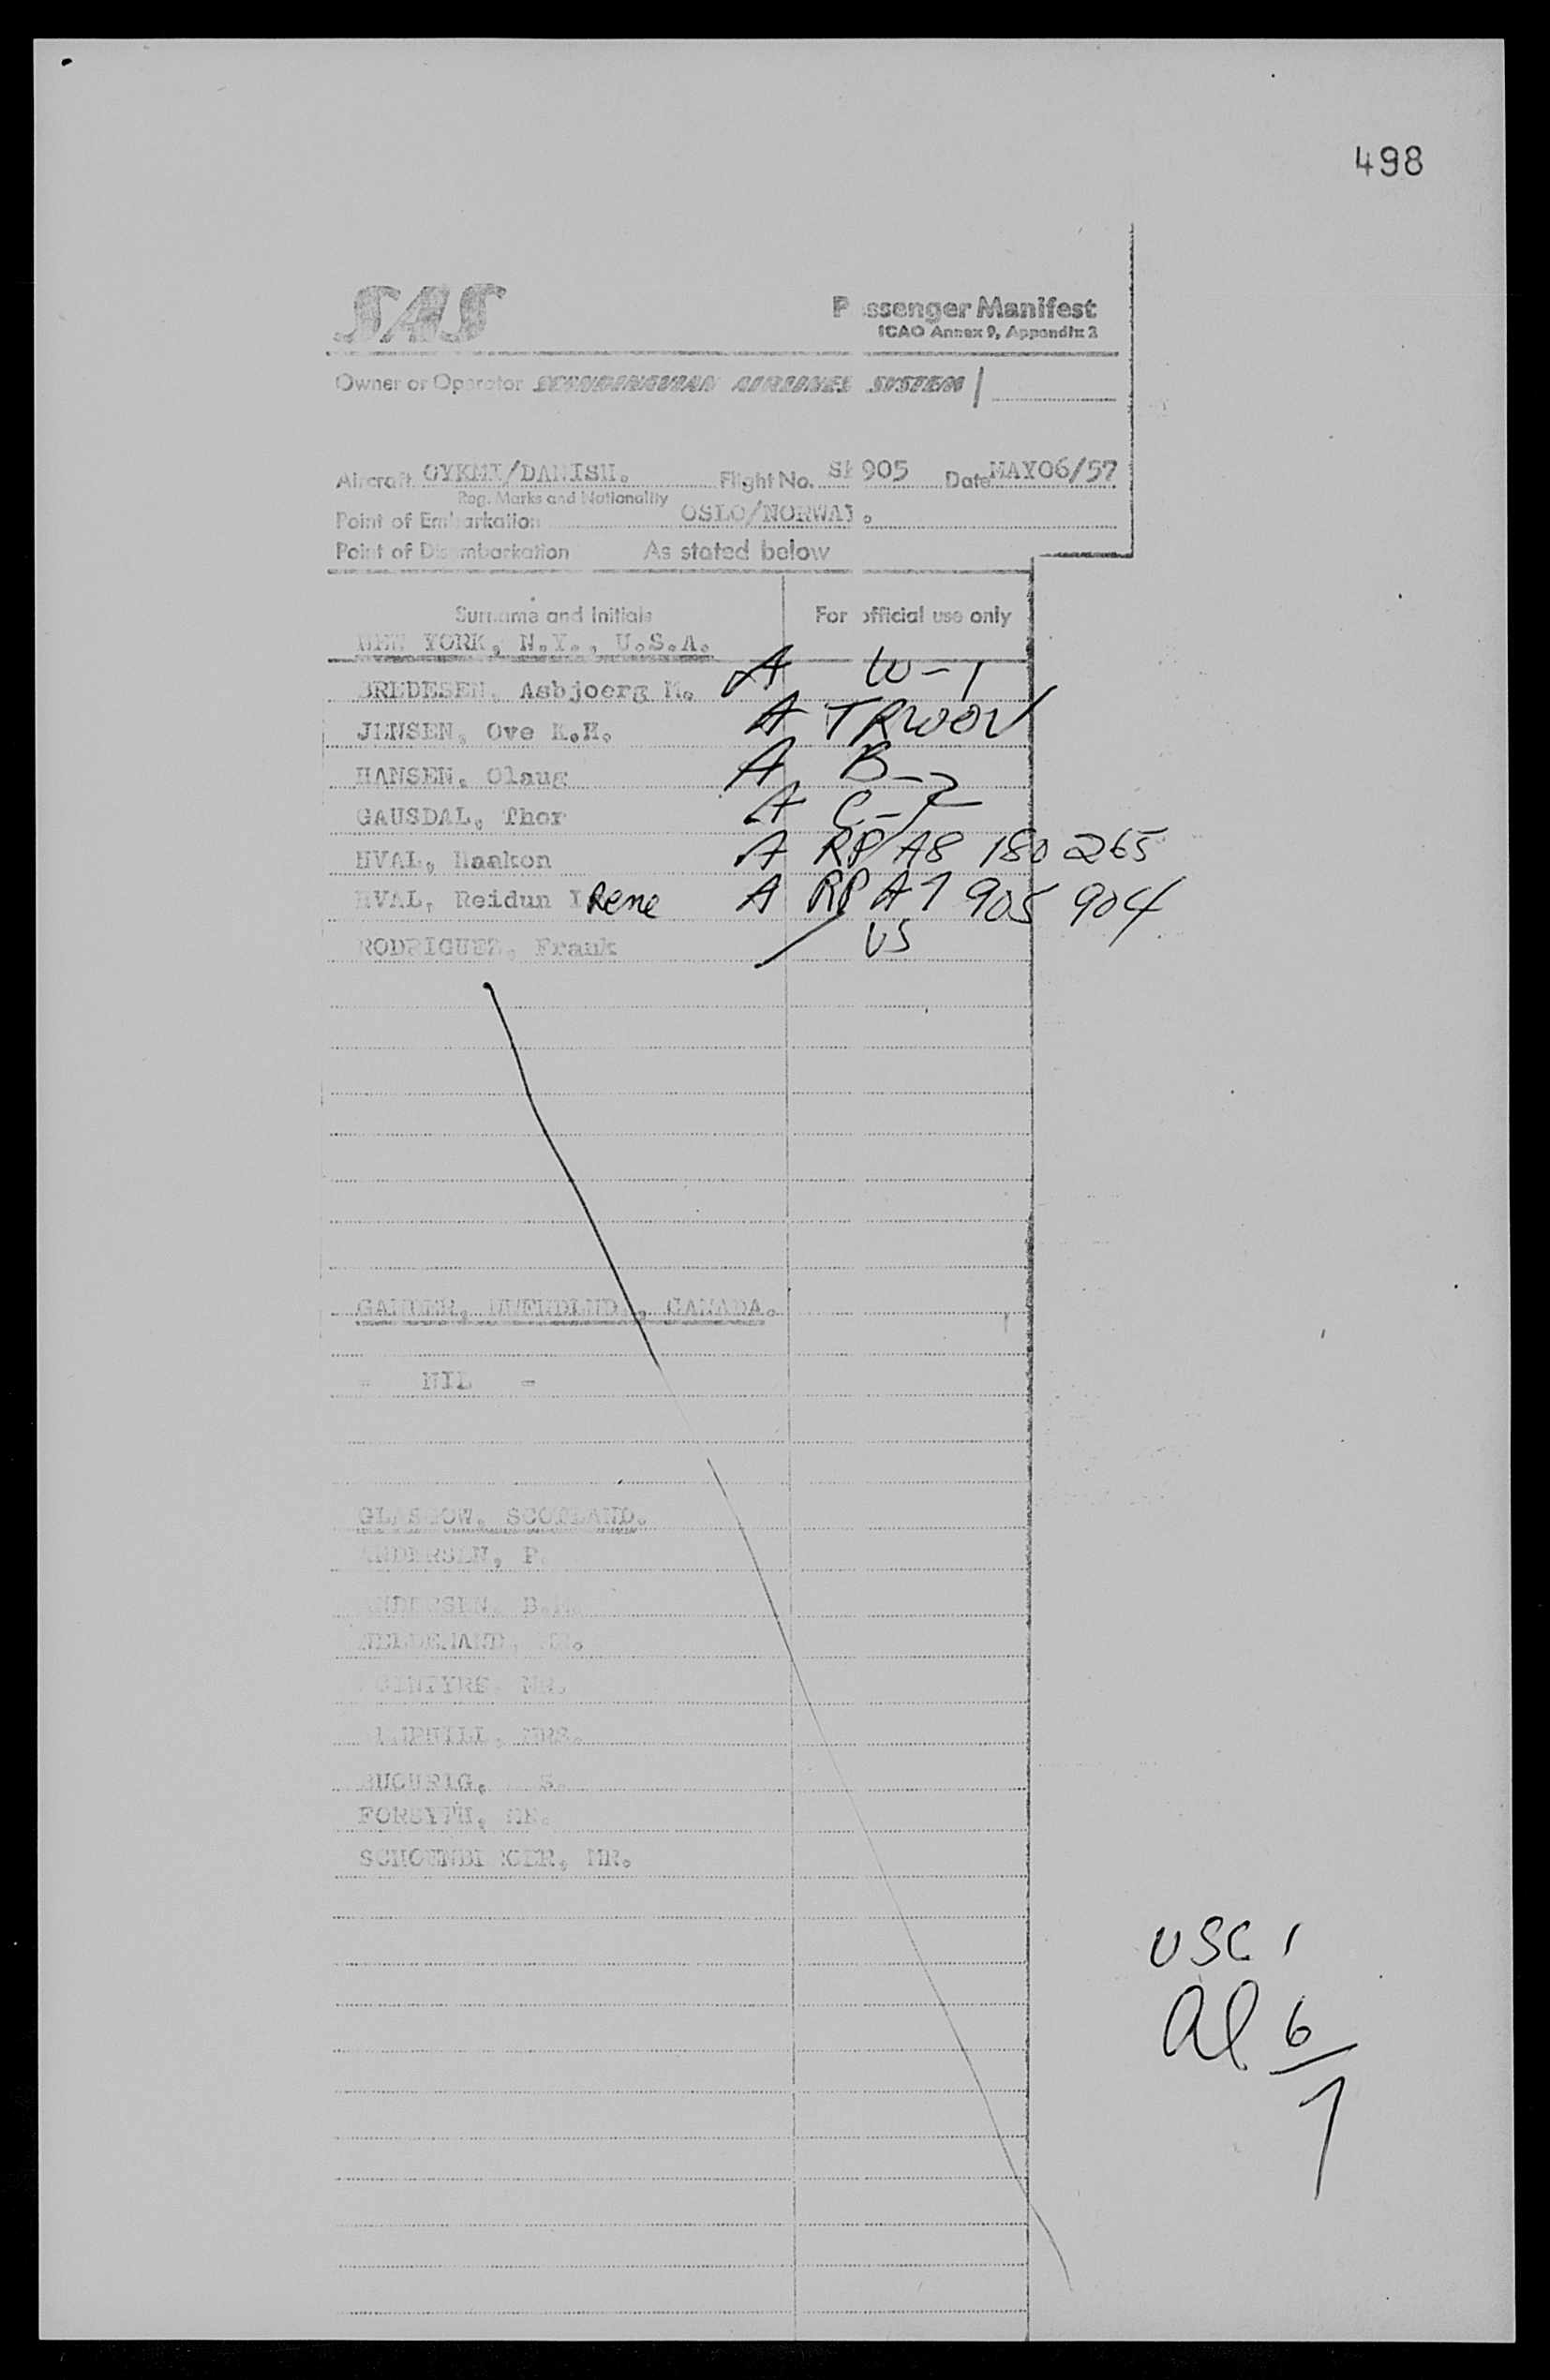 498
SAS
Passenger Manifest
ICAO Annex 9, Appendix 2
Owner or Operator SCANDINAVIAN AIRLINES SYSTEM
Aircraft OYKMI/DANISH. Flight No. SK 905 Date MAY06/57
Reg. Marks and Nationality
Point of Embarkation OSLO/NORWAY.
Point of Disembarkation As stated below
Surname and Initials For official use only
NEW YORK, N.Y., U.S.A.
BREDESEN, Asbjoerg M. A W-1
JENSEN, Ove K.H. A TRWOV
HANSEN, Olaug A B-2
GAUSDAL, Thor A C-2
HVAL, Haakon A RP A8 180 265
HVAL, Reidun Irene A RP A7 905 904
RODRIGUEZ, Frank US
GANDER, NWFNDLND., CANADA.
- NIL -
GLASGOW, SCOTLAND.
ANDERSEN, P.
ANDERSEN, B.
MR.
MCINTYRE, MR.
MRS.
FORSYTH, MR.
MR.
USC 1
Al 6
7